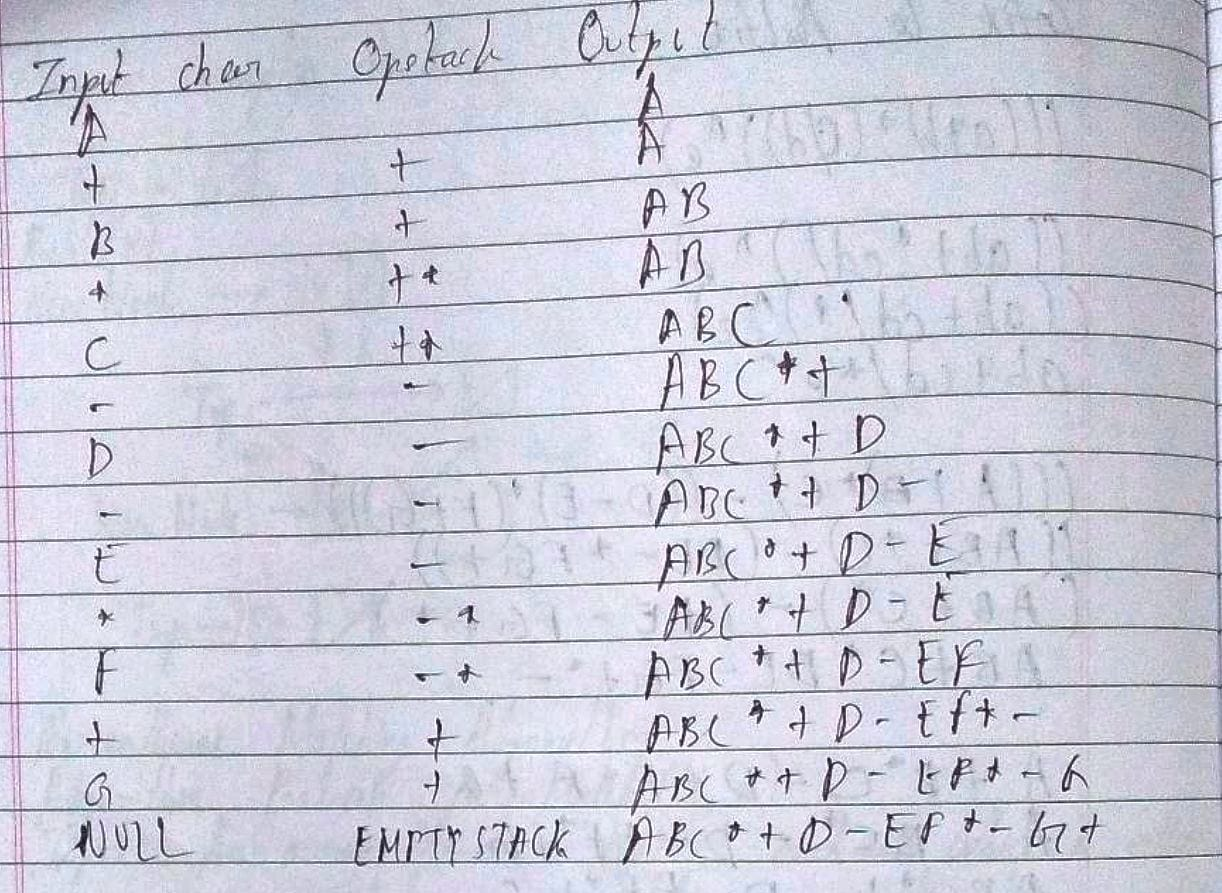 Input char Opstack Output
A A
+ + A
B + AB
* + * AB
C + * ABC
- - ABC * +
D - ABC * + D
- - ABC * + D -
E - ABC * + D - E
* - * ABC * + D - E
F - * ABC * + D - EF
+ + ABC * + D - EF * -
G + ABC * + D - EF * - G
NULL EMPTY STACK ABC * + D - EF * - G +